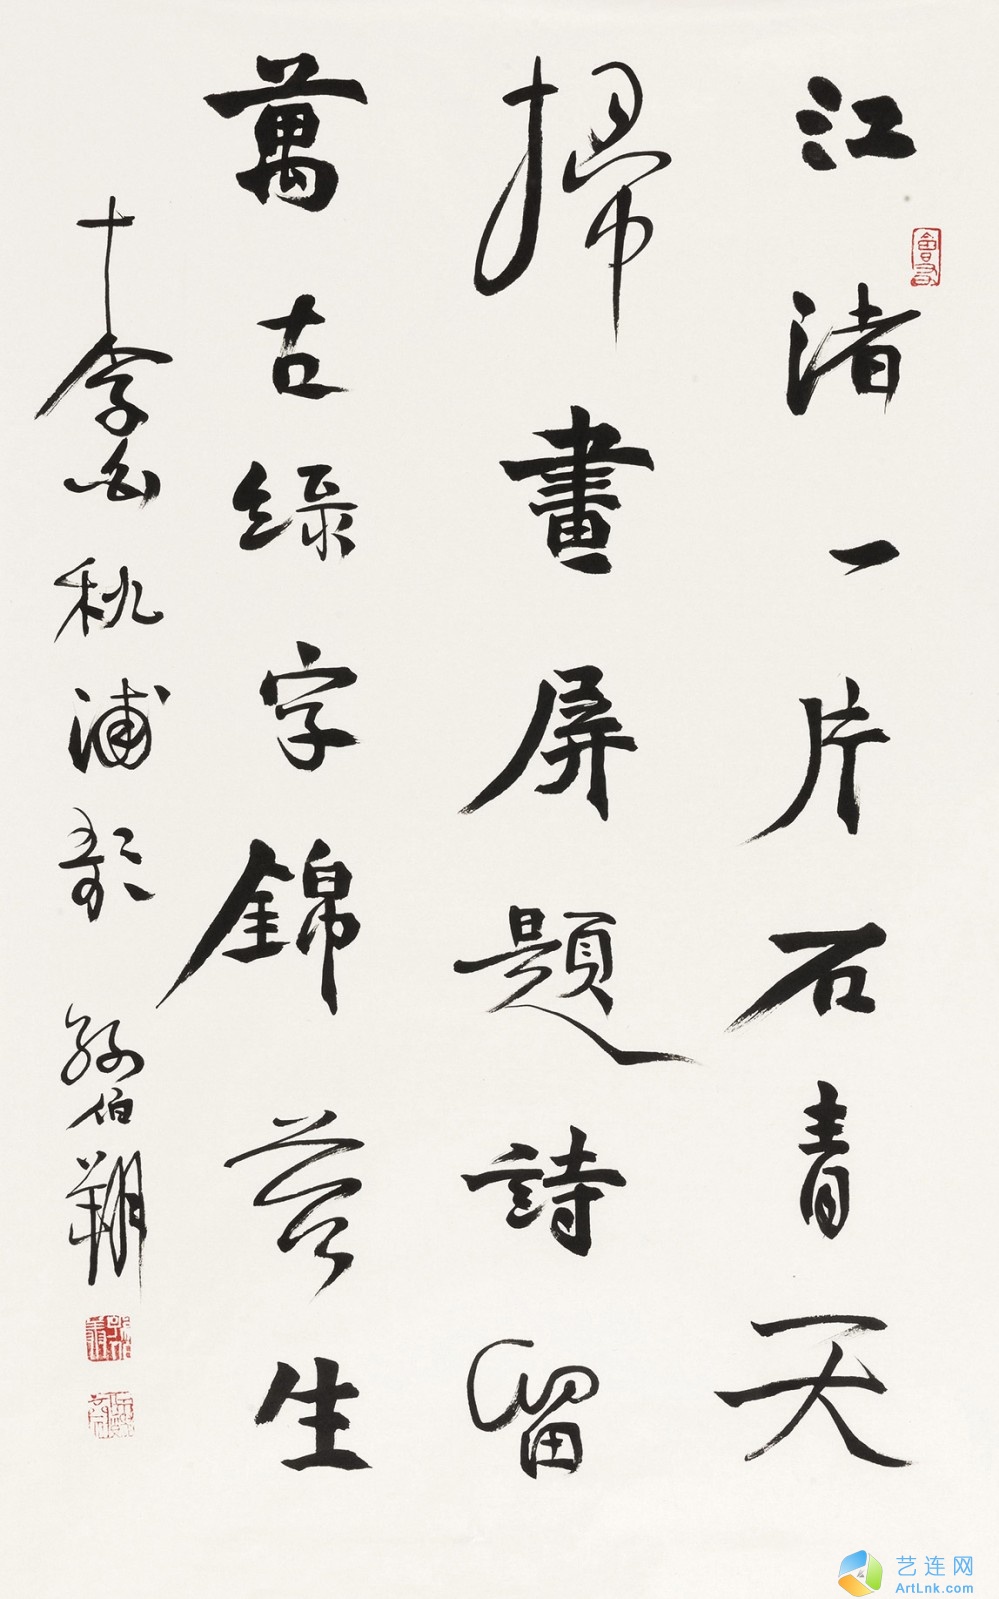 江渚一片石青天
掃畫屏題詩留
萬古綠字錦苔生
李白秋浦歌 孫伯翔
艺连网
ArtLnk.com